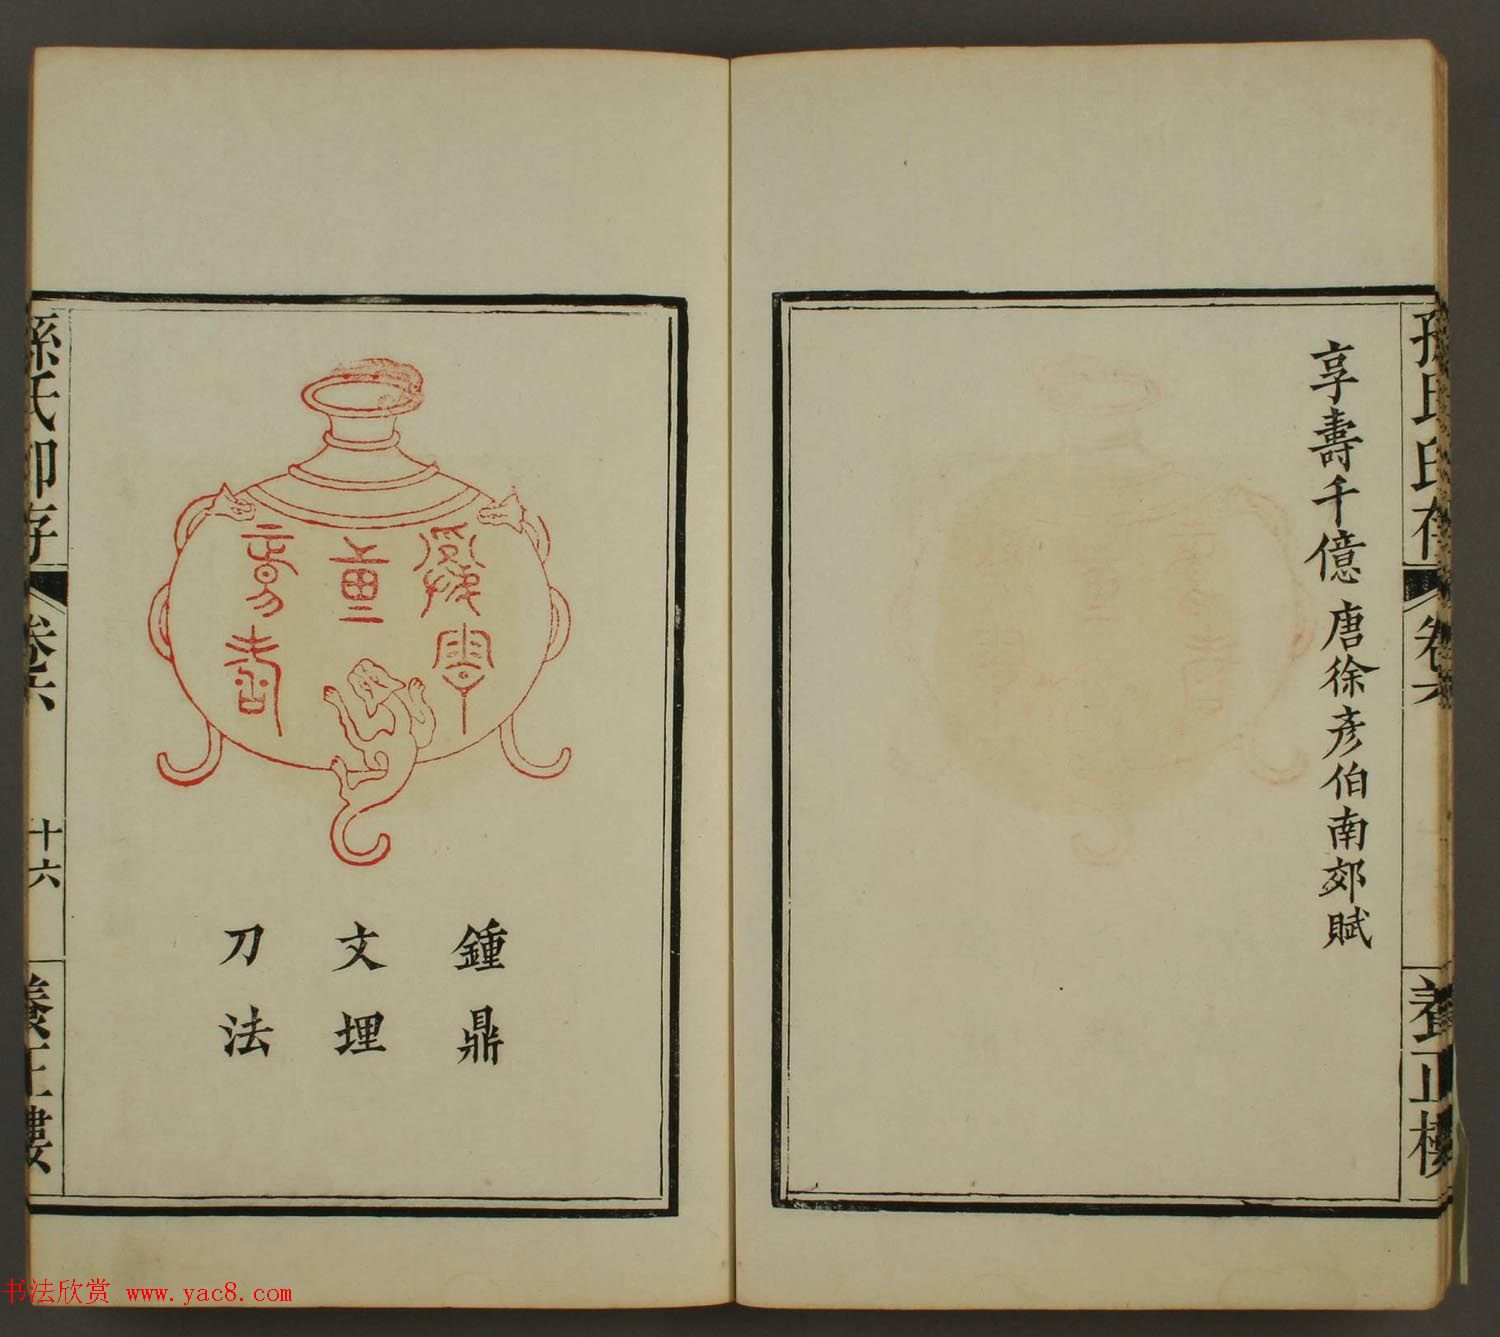 孫氏印存
卷六
養正樓
享壽千億 唐徐彥伯南郊賦
鍾鼎
文埋
刀法
孫氏印存
卷六
十六
養正樓
书法欣赏 www.yac8.com